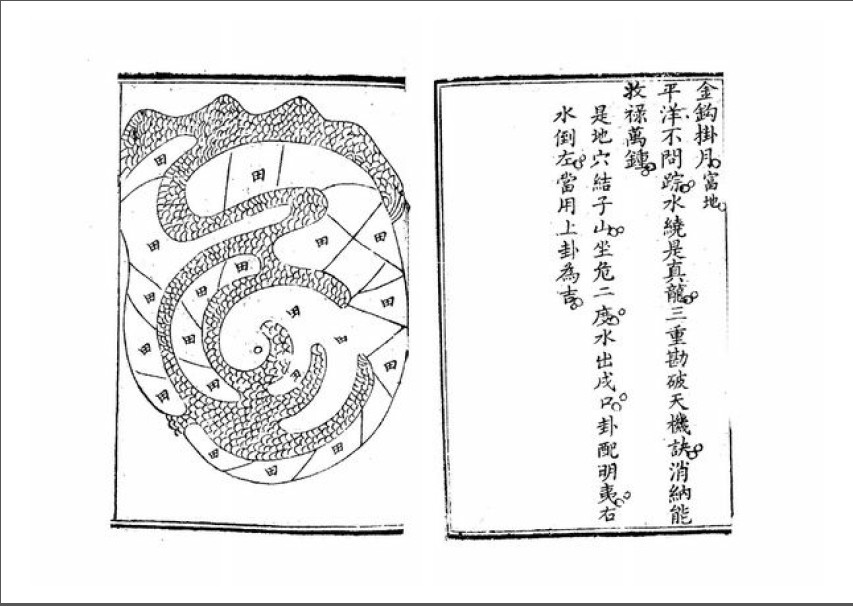 金鈎掛月富地
平洋不問踪水繞是真龍三重勘破天機訣消納能
收祿萬鍾
是地穴結子山坐危二度水出戌口卦配明夷右
水倒左當用上卦為吉
田
田
田
田
田
田
田
田
田
田
田
田
田
田
田
田
田
田
田